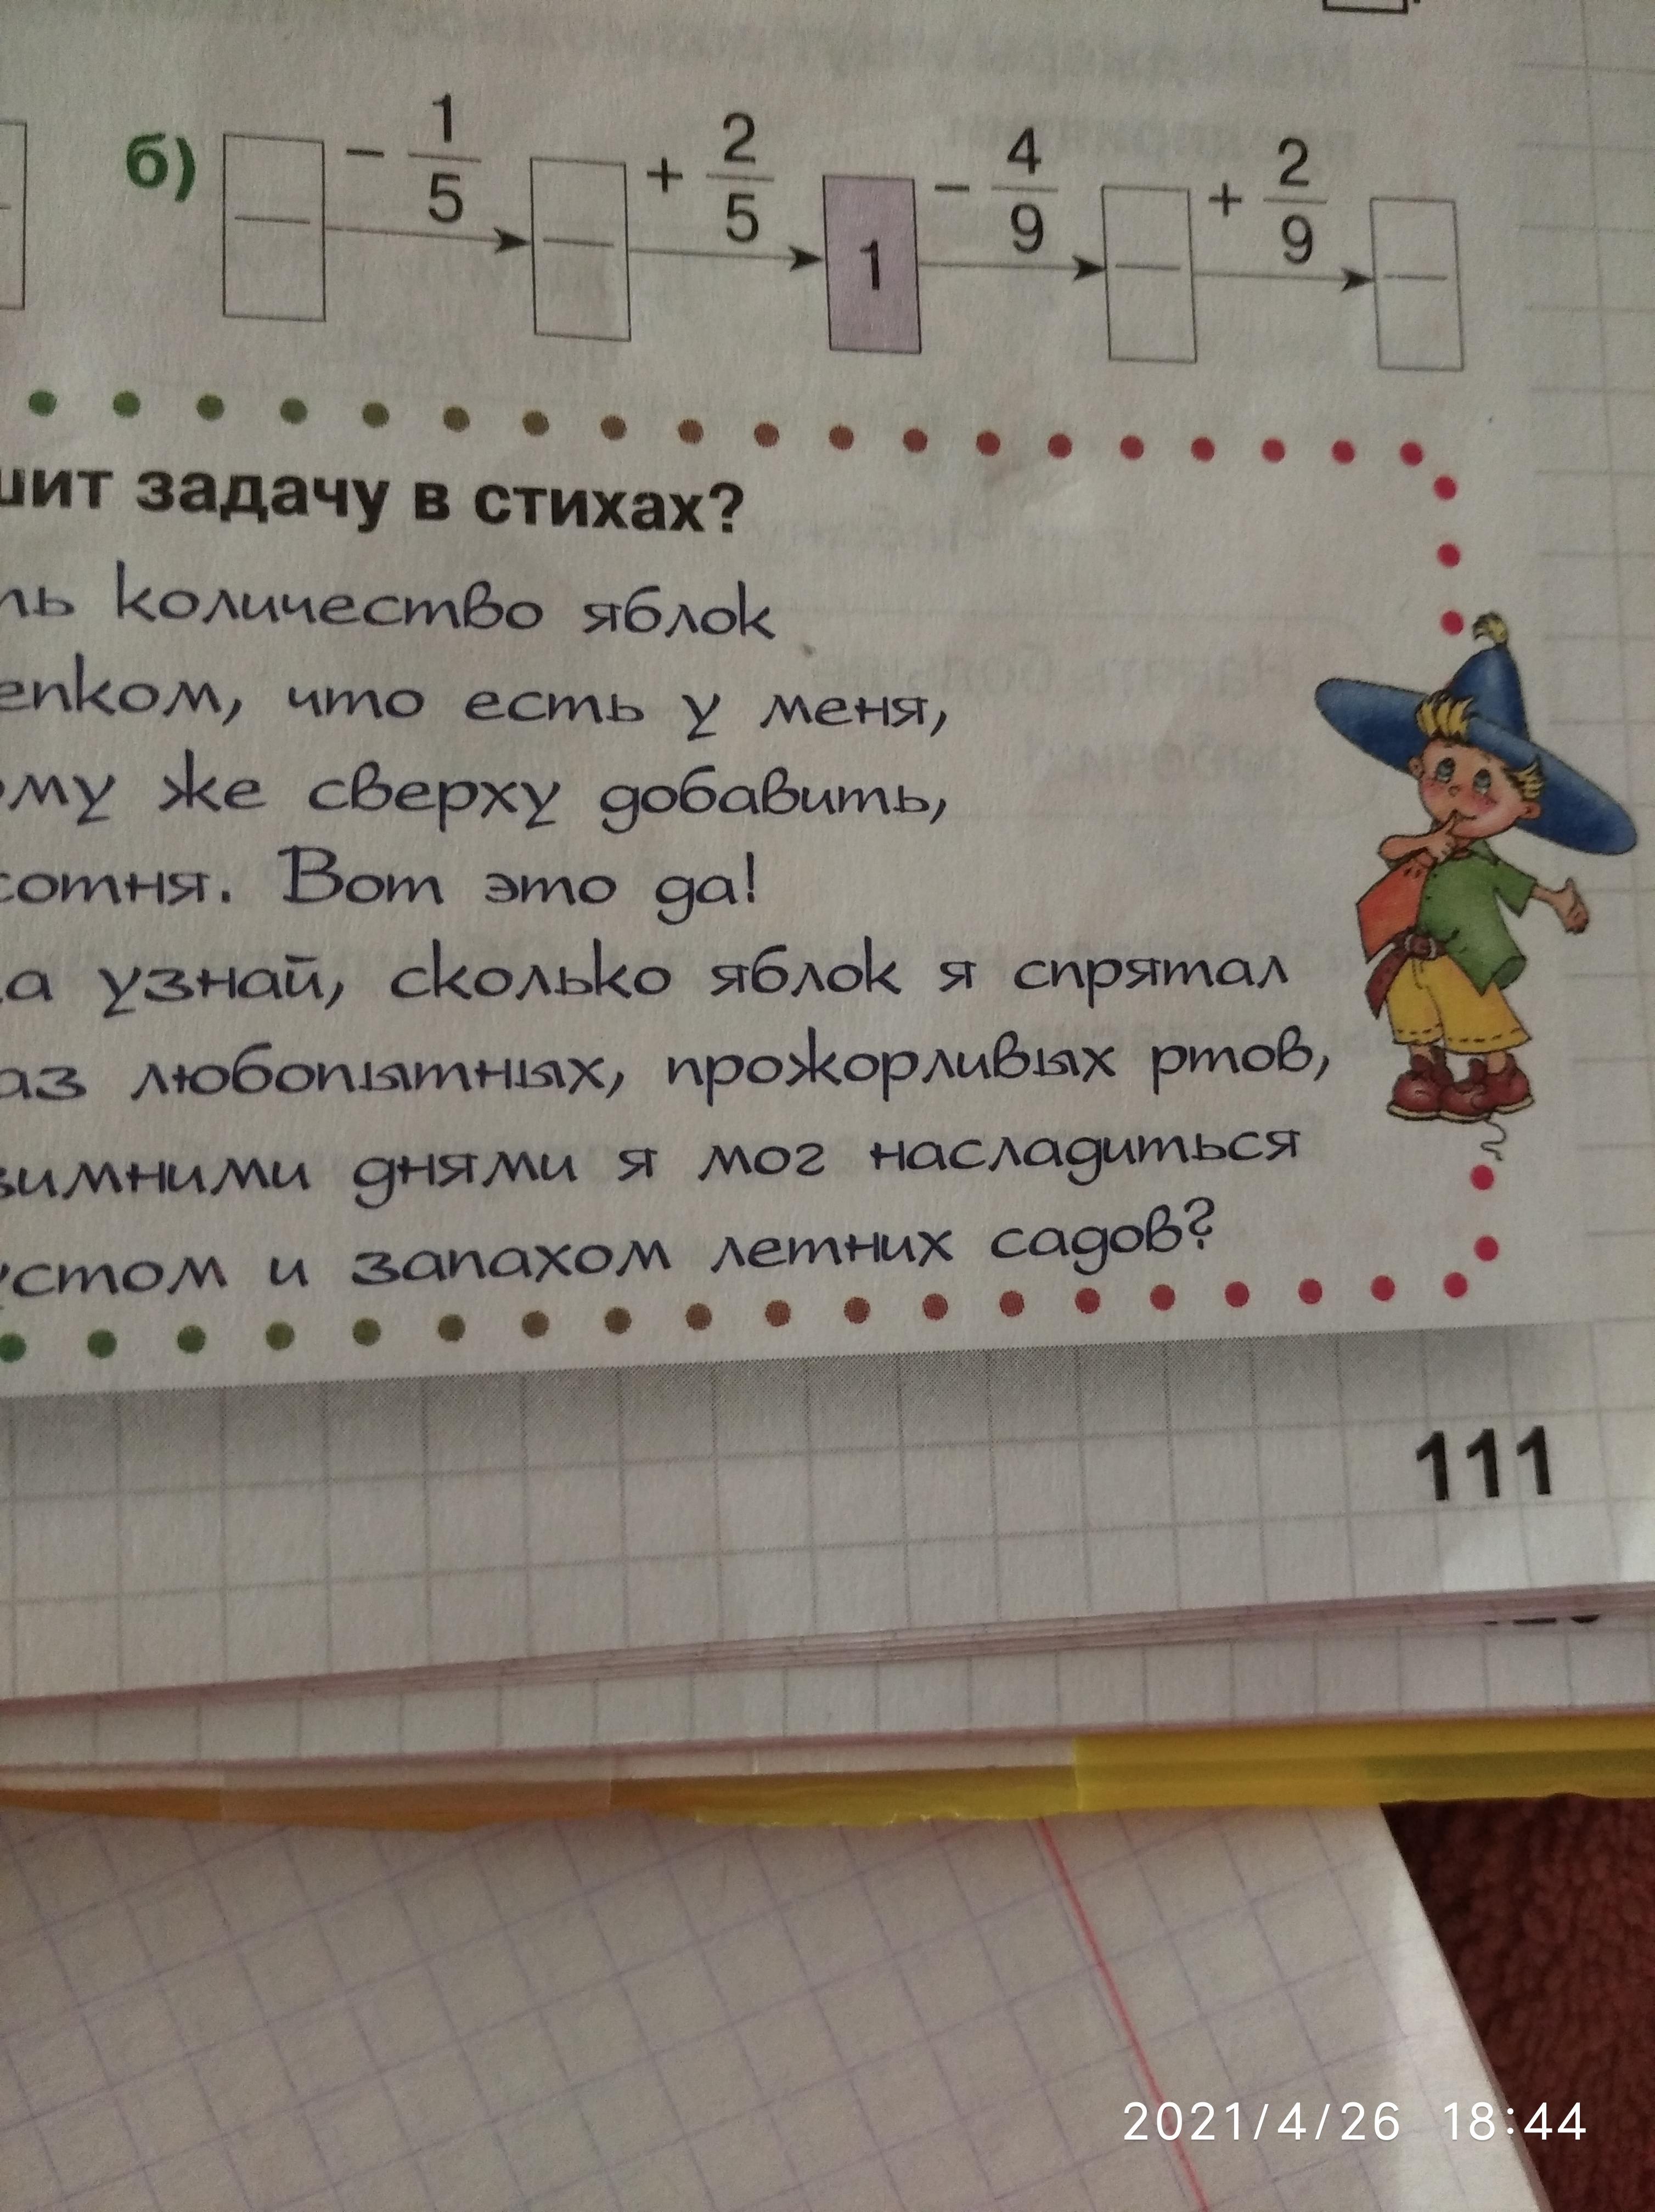 б) − 1/5 + 2/5 1 − 4/9 + 2/9
задачу в стихах?
количество яблок
что есть у меня,
же сверху добавить,
Вот это да!
узнай, сколько яблок я спрятал
любопытных, прожорливых ртов,
днями я мог насладиться
и запахом летних садов?
111
2021/4/26 18:44